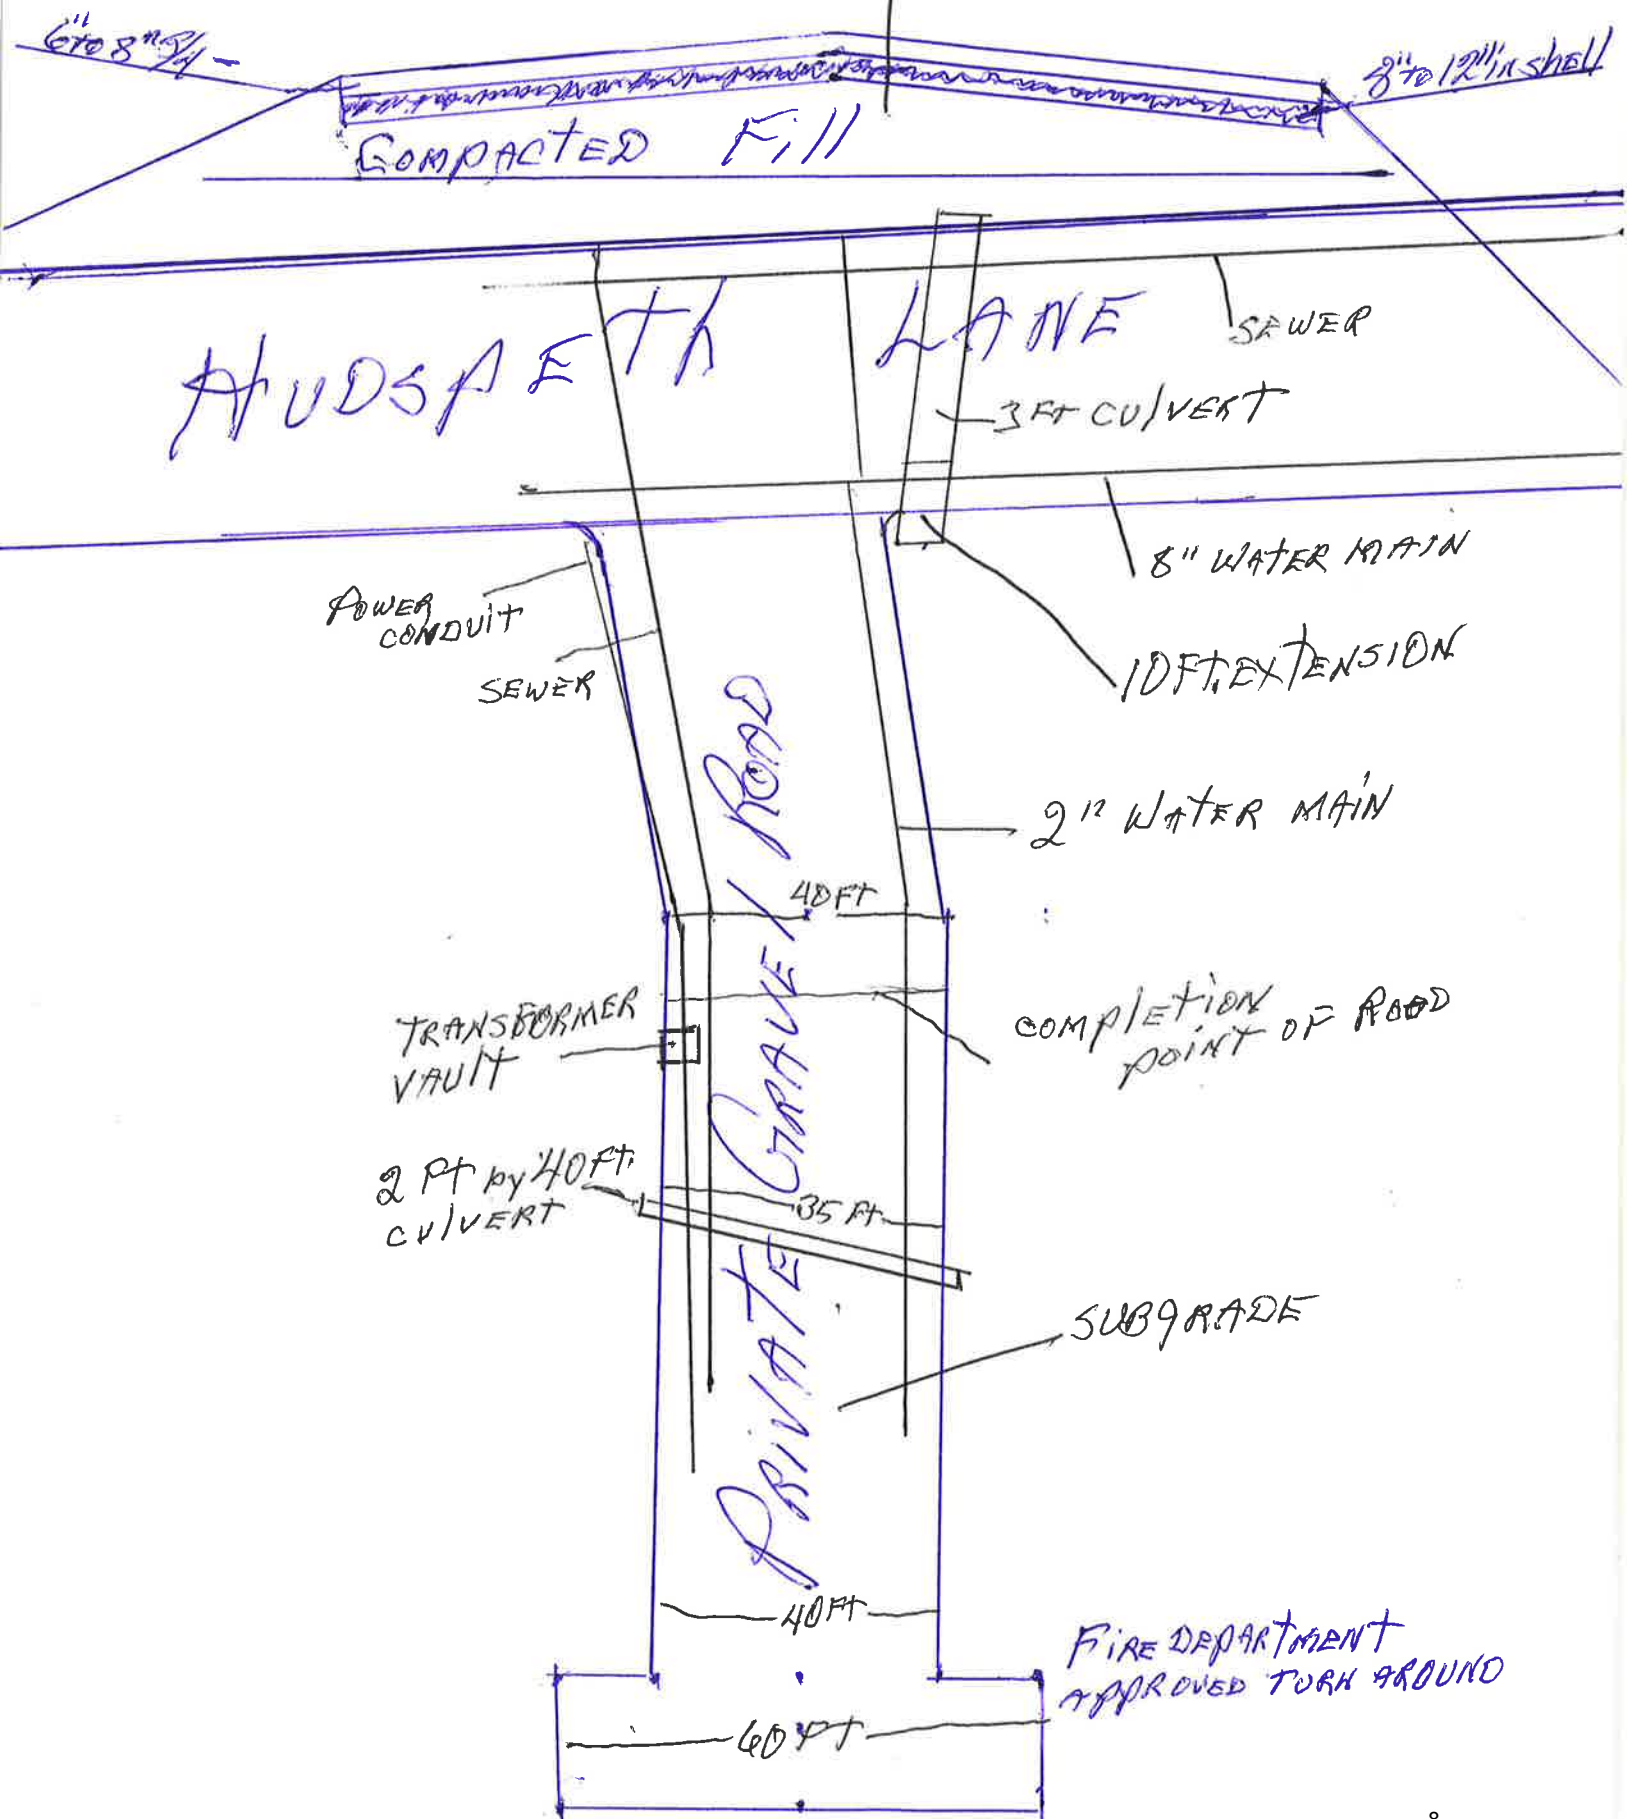 6" to 8"
8" to 12" in shell
COMPACTED Fill
HUDSPETH LANE
SEWER
3 FT CUlVERT
8" WATER MAIN
POWER
CONDUIT
SEWER
10 FT. EXTENSION
2" WATER MAIN
40 FT
TRANSFORMER
VAUlT
COMPlETION
POINT OF ROAD
2 FT by 40 FT.
CUlVERT
35 FT
SUBgRADE
PRIVATE GRAVEl ROAD
40 FT
FIRE DEPARTMENT
APPROVED TURN AROUND
60 FT